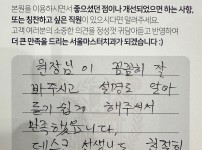 본원을 이용하시면서 좋으셨던 점이나 개선되었으면 하는 사항,
또는 칭찬하고 싶은 직원이 있으시다면 알려주세요.
고객 여러분의 소중한 의견을 정성껏 귀담아듣고 반영하여
더 큰 만족을 드리는 서울마스터치과가 되겠습니다 :)
원장님이 꼼꼼히 잘
봐주시고 설명도 알아
듣기 쉽게 해주셔서
만족했습니다.
데스크 선생님도 친절히